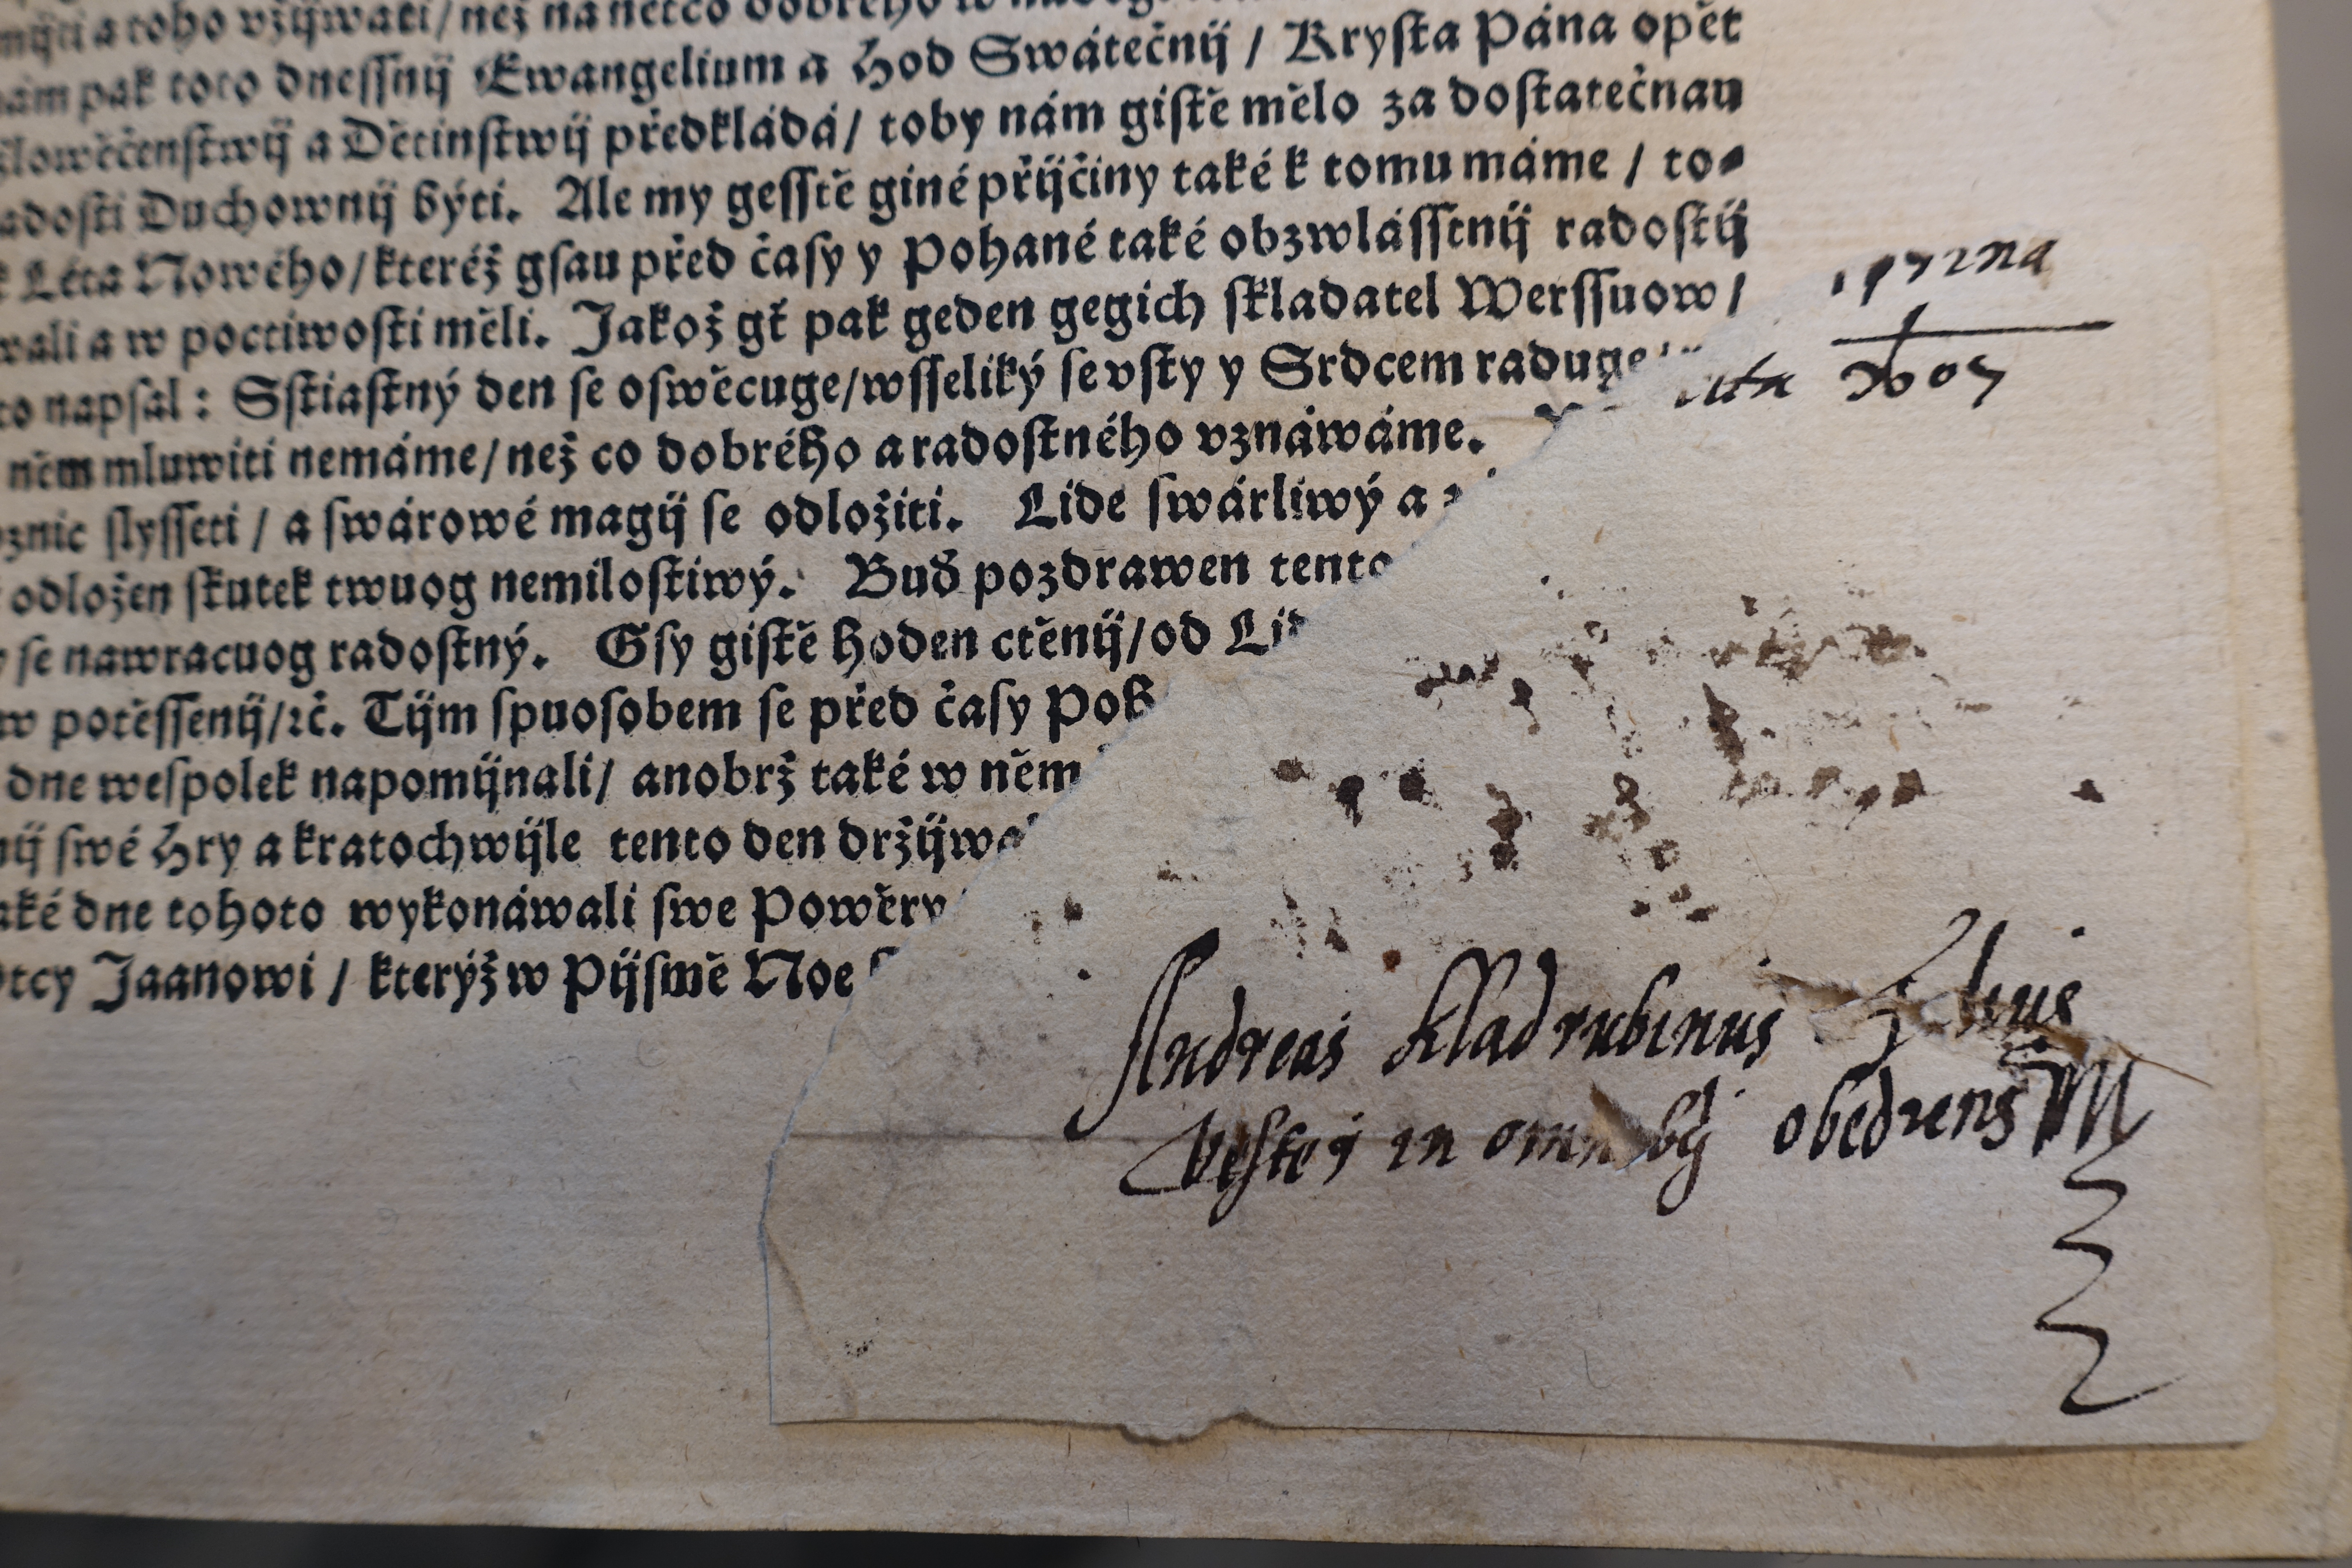 mijti a toho vžijwati / než na něčo dobrého
nám pak toto dneſſnij Ewangelium a Hod Swátečnij / Kryſta Pána opět
člowěčenſtwij a Dětinſtwij předkládá / toby nám giſtě mělo za doſtatečnau
radoſti Duchownij býti. Ale my geſſtě giné přijčiny také k tomu máme / to⸗
k Léta Nowého / kteréž gſau před čaſy y Pohané také obzwláſſtnij radoſtij
wali a w poctiwoſti měli. Jakož gť pak geden gegich ſkladatel Werſſuow /
to napſal : Sſtiaſtný den ſe oſwěcuge / wſſeliký ſe vſty y Srdcem raduge
něm mluwiti nemáme / než co dobrého a radoſtného vznáwáme.
znic ſlyſſeti / a ſwárowé magij ſe odložiti. Lide ſwárliwý a
odložen ſkutek twuog nemiloſtiwý. Buď pozdrawen tento
ſe nawracuog radoſtný. Gſy giſtě hoden ctěnij / od Lid
w potěſſenij / ꝛč. Tijm ſpuoſobem ſe před čaſy Poh
dne weſpolek napomijnali / anobrž také w něm
nij ſwé Hry a kratochwijle tento den držijwa
aké dne tohoto wykonáwali ſwe Powěry
Otcy Jaanowi / kterýž w Pijſmě Noe
Andreas Kladrubinus
in obediens